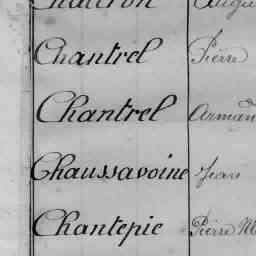 Chantrel Pierre
Chantrel Arman
Chaussavoine Jean
Chantepie Pierre M